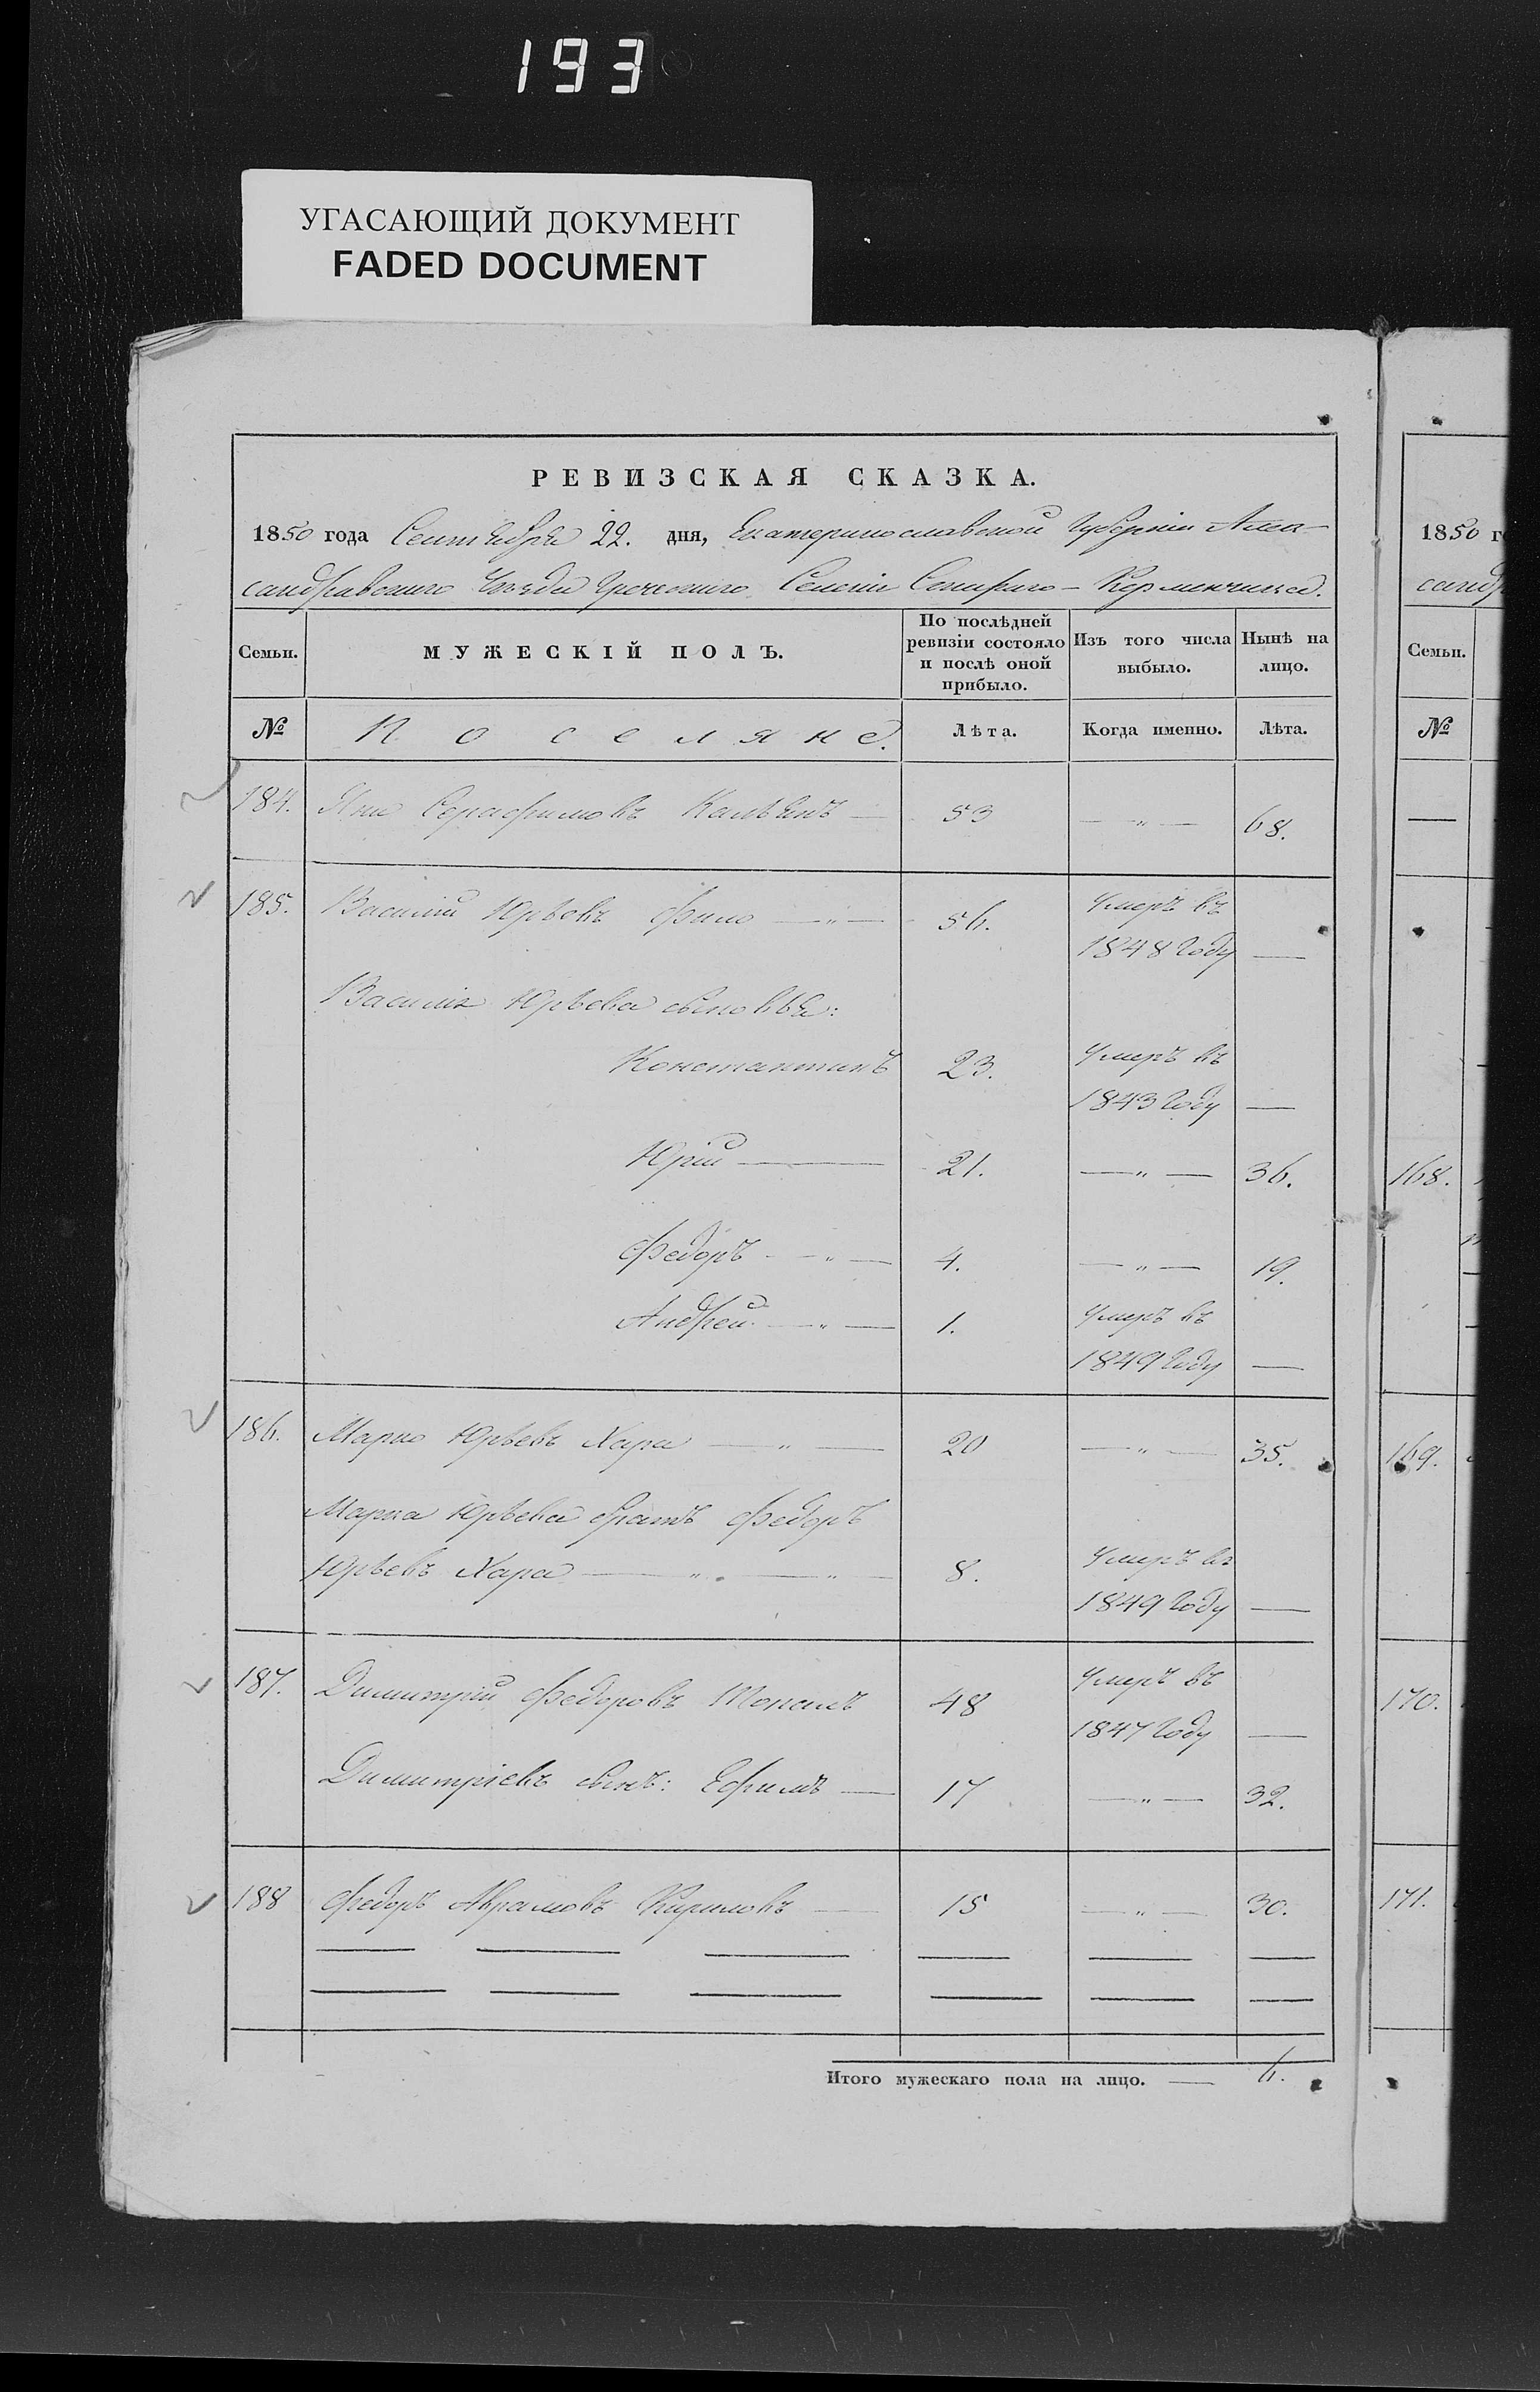 193
УГАСАЮЩИЙ ДОКУМЕНТ
FADED DOCUMENT
РЕВИЗСКАЯ СКАЗКА.
1850 года Сентября 22. дня, Екатеринославской Губерніи Алек-
сандровского Уезда Греческого Селенія Стараго-Керменчика.
Семьи. МУЖЕСКІЙ ПОЛЪ. По послѣдней ревизіи состояло и послѣ оной прибыло. Изъ того числа выбыло. Нынѣ на лицо.
№ Поселяне. Лѣта. Когда именно. Лѣта.
184. Серафимовъ — 53 — „ — 68.
185. Василій Юрьевъ — „ — 56. Умеръ въ
1848 Году —
Василія Юрьева сыновья:
Константинъ 23. Умеръ въ
1843 Году —
Юрій — 21. — „ — 36.
Федоръ — „ — 4. — „ — 19.
Андрей — „ — 1. Умеръ въ
1849 Году —
186. Марко Юрьевъ Хара — „ — 20 — „ — 35.
Марка Юрьева братъ Федоръ
Юрьевъ Хара — „ — „ — 8. Умеръ въ
1849 Году —
187. Димитрій Федоровъ Топалъ 48 Умеръ въ
1847 Году —
Димитріевъ сынъ: Ефимъ — 17 — „ — 32.
188 Федоръ Аврамовъ Кириловъ — 15 — „ — 30.
Итого мужескаго пола на лицо. — 6.
1850 г
санд
Семьи.
№
168.
169.
170.
171.